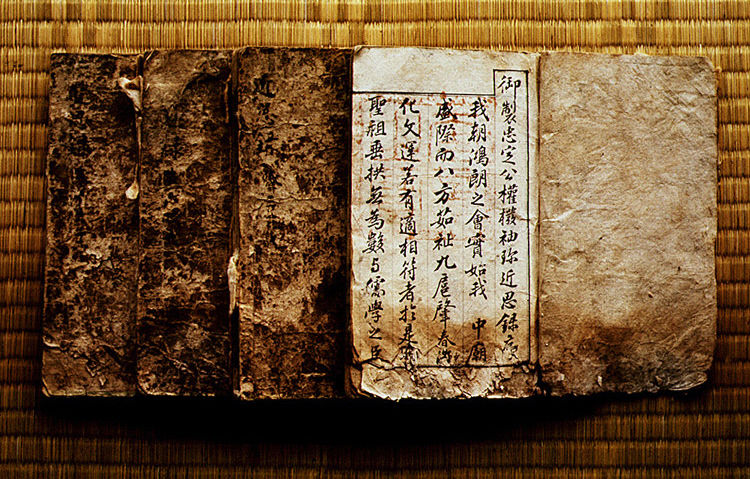 御製忠定公權橃袖珍近思錄序
我朝鴻朗之會實始我 中廟
盛際而八方茹祉九扈肇春
化文運若有適相符者於是
聖祖垂拱無為數與儒學之臣
近思